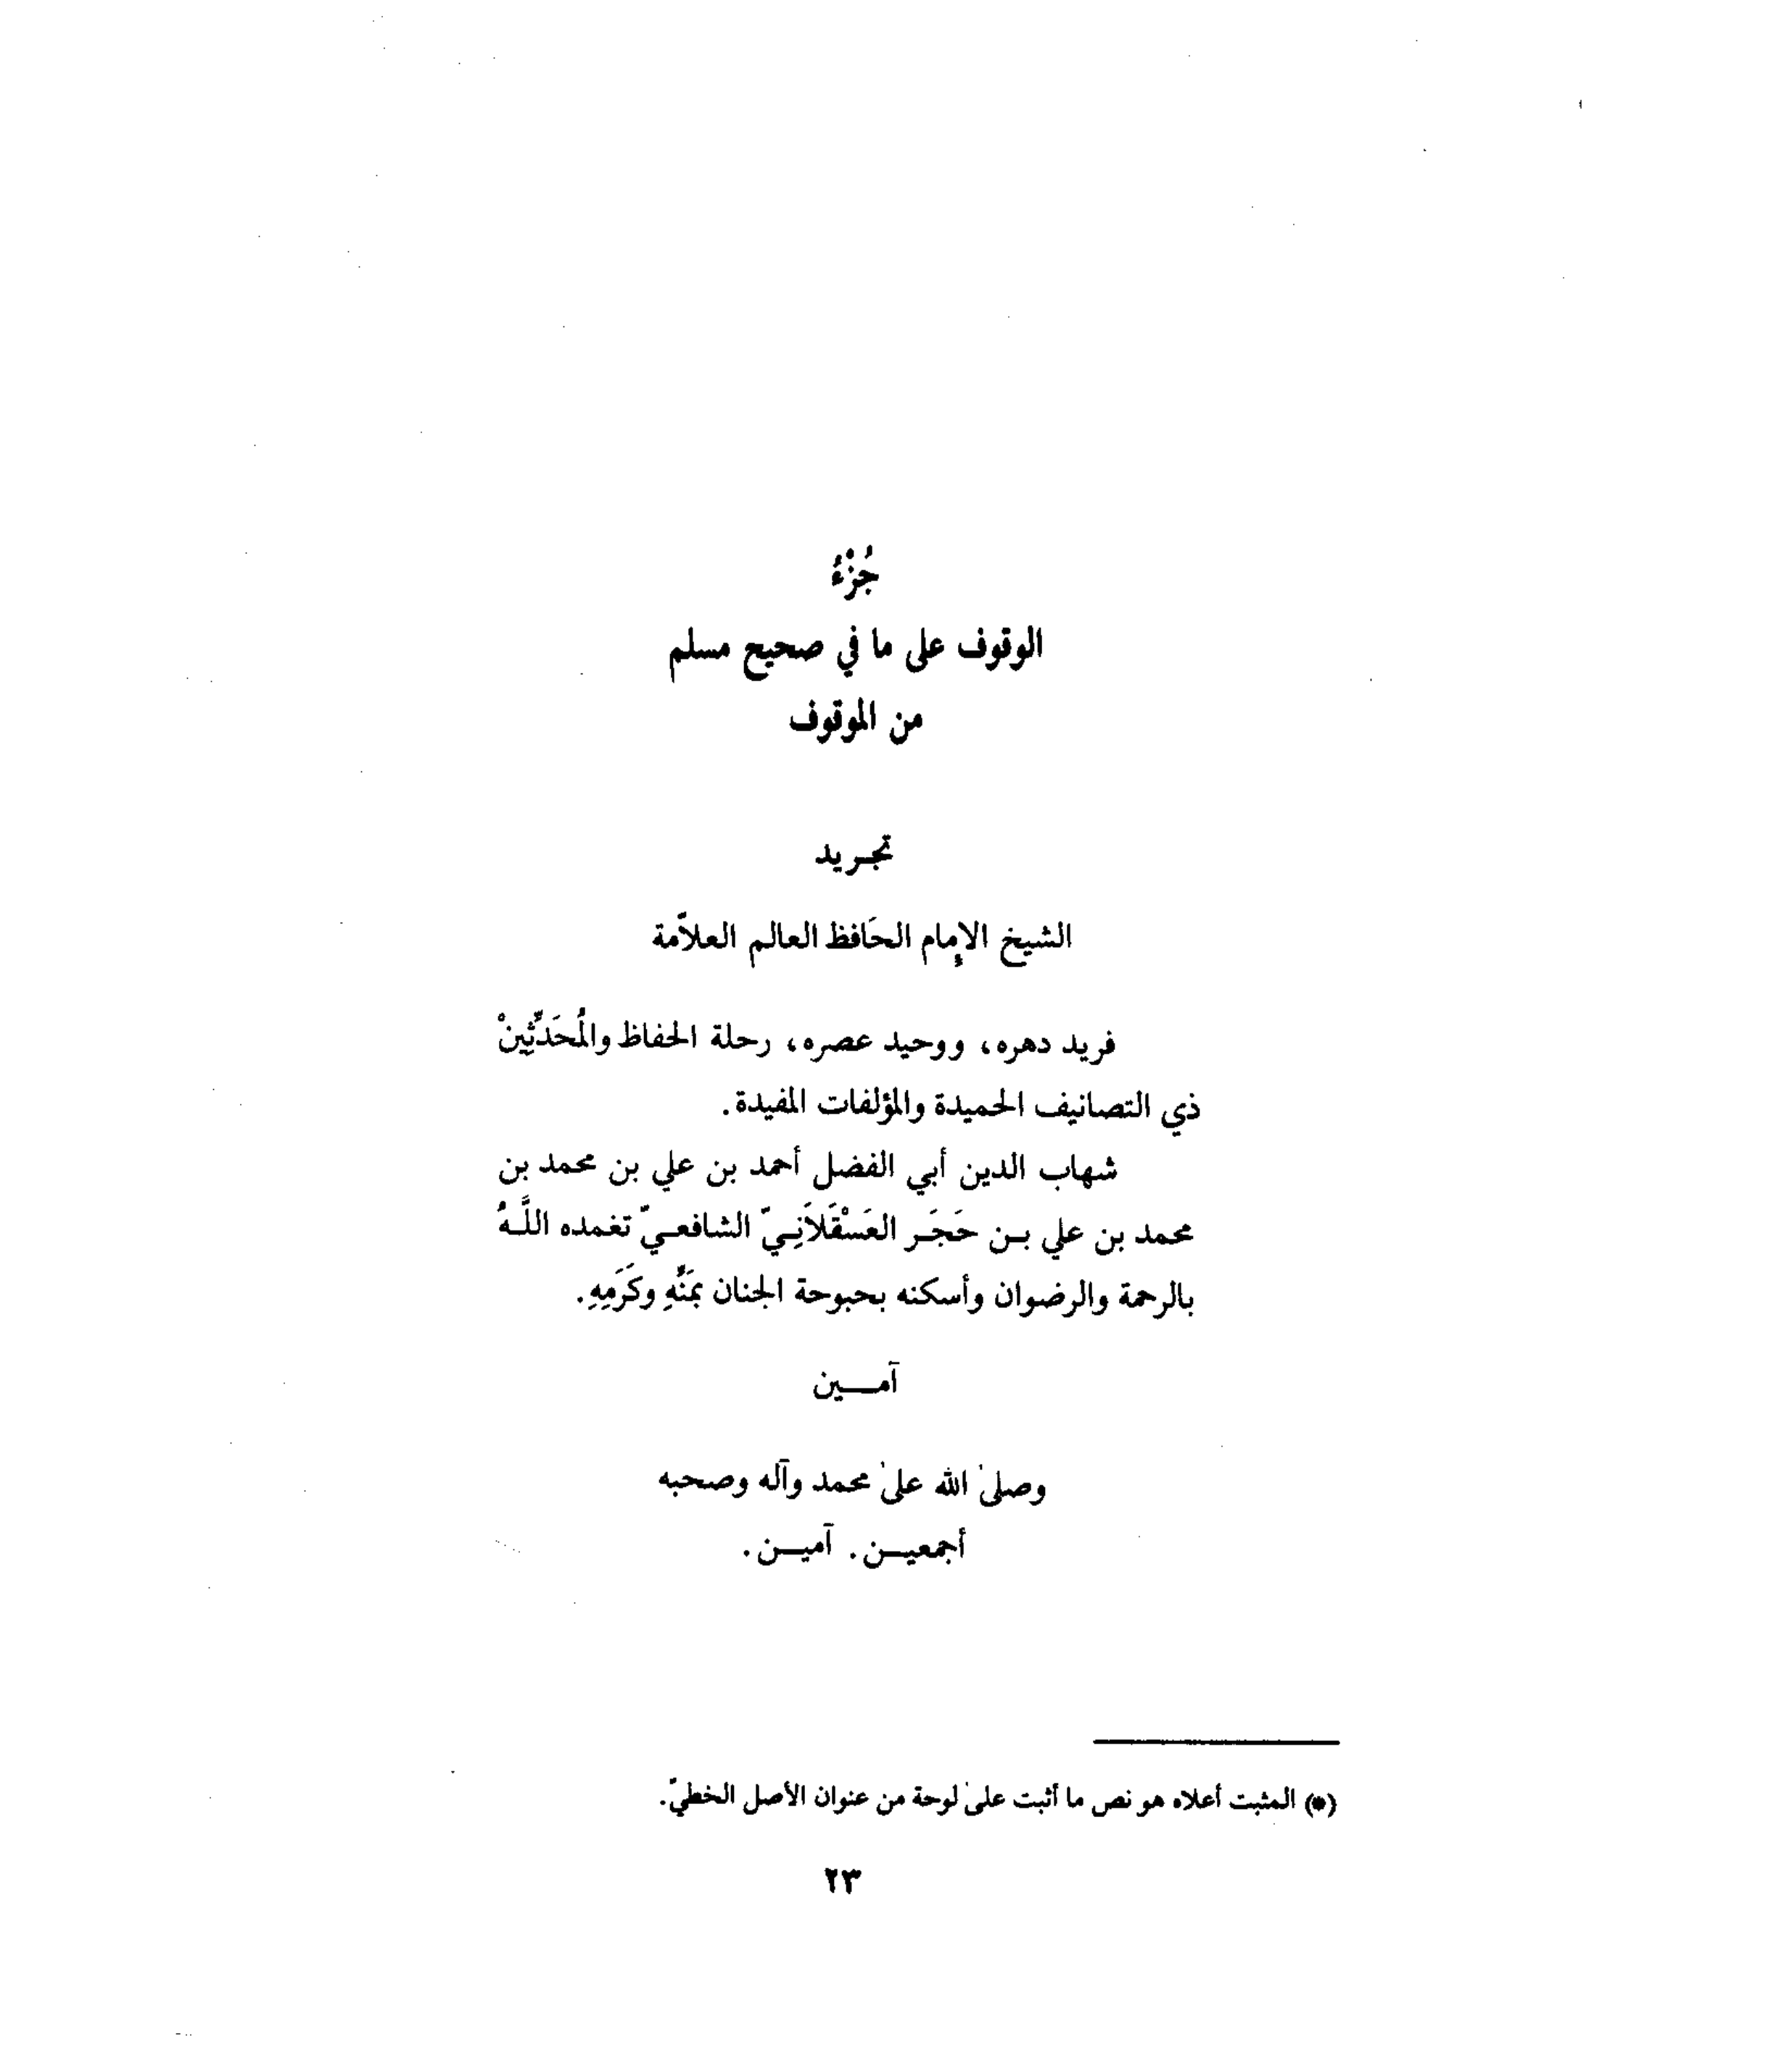 جُزْءُ
الوقوف على ما في صحيح مسلم
من الموقوف
تجريد
الشيخ الإمام الحَافظ العالم العلاّمة
فريد دهره، ووحيد عصره، رحلة الحفاظ والمُحَدِّثِينْ
ذي التصانيف الحميدة والمؤلفات المفيدة.
شهاب الدين أبي الفضل أحمد بن علي بن محمد بن
محمد بن علي بن حَجَر العَسْقَلاَنِيّ الشافعيّ تغمده اللَّهُ
بالرحمة والرضوان وأسكنه بحبوحة الجنان بمَنِّهِ وكَرَمِهِ.
آمين
وصلىٰ الله علىٰ محمد وآله وصحبه
أجمعين. آمين.
(*) المثبت أعلاه هو نص ما أثبت علىٰ لوحة من عنوان الأصل الخطيّ.
٢٣